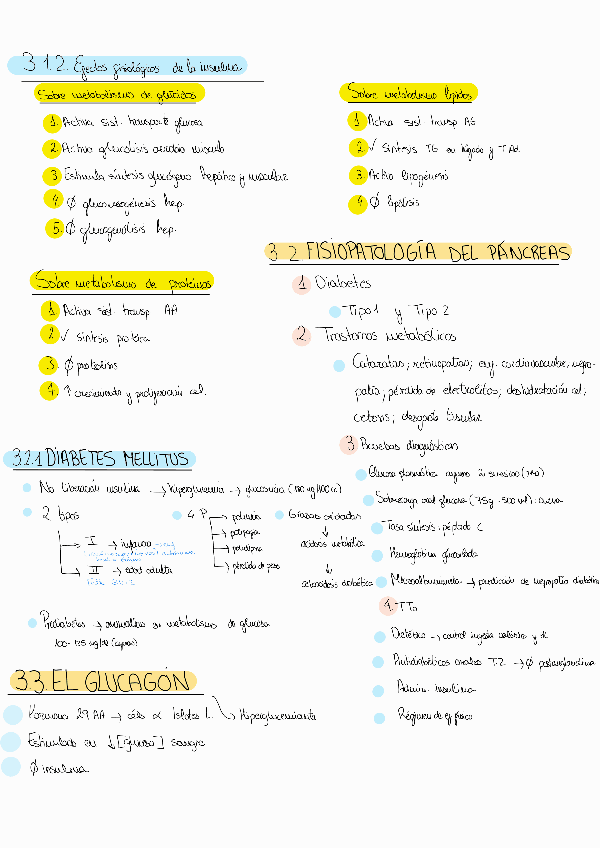 3.1.2. Efectos fisiológicos de la insulina
Sobre metabolismo de glúcidos
1. Activa sist. transporte glucosa
2. Activa glucólisis músculo
3. Estimula síntesis glucógeno hepático y muscular
4. Ø gluconeogénesis hep.
5. Ø glucogenólisis hep.
Sobre metabolismo lípidos
1. Activa sist. transp AG
2. ✓ Síntesis TG en hígado y T.Ad.
3. Activa lipogénesis
4. Ø lipolisis
Sobre metabolismo de proteínas
1. Activa sist. transp AA
2. ✓ síntesis proteica
3. Ø proteolisis
4. ↑ crecimiento y proliferación cel.
3.2 FISIOPATOLOGÍA DEL PÁNCREAS
1. Diabetes
Tipo 1 y Tipo 2
2. Trastornos metabólicos
Cataratas; retinopatías; enf. cardiovascular, nefro-
patía; pérdida de electrolitos; deshidratación cel;
cetosis; desgaste tisular
3. Pruebas diagnósticas
Glucosa plasmática ayuno
Sobrecarga oral glucosa (75g
Tasa síntesis péptido C
Hemoglobina glucosilada
Microalbuminuria → predicción de nefropatía diabética
4. TTo
Dietético → control ingesta calórica y
Antidiabéticos orales T.2 → Ø
Admin. insulina
Régimen de ej físico
3.2.1 DIABETES MELLITUS
No liberación insulina → hiperglucemia → glucosuria (180 mg/100 cc)
2 tipos
I → infancia
II → edad adulta
4 P
poliuria
polifagia
polidipsia
pérdida de peso
Grasas oxidadas
↓
acidosis metabólica
↓
cetoacidosis diabética
Prediabetes → anomalías en metabolismo de glucosa
100-125 mg/dl (ayunas)
3.3. EL GLUCAGÓN
Hormona 29 AA → céls α Islotes L. → Hiperglucemiante
Estimulada en ↓ [glucosa] sangre
Ø insulina